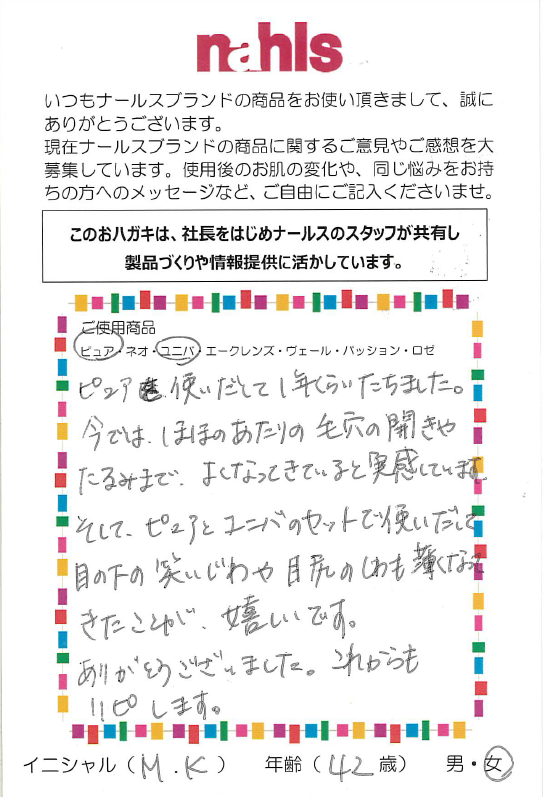 nahls
いつもナールスブランドの商品をお使い頂きまして、誠に
ありがとうございます。
現在ナールスブランドの商品に関するご意見やご感想を大
募集しています。使用後のお肌の変化や、同じ悩みをお持
ちの方へのメッセージなど、ご自由にご記入くださいませ。
このおハガキは、社長をはじめナールスのスタッフが共有し
製品づくりや情報提供に活かしています。
ご使用商品
ピュア・ネオ・ユニバ・エークレンズ・ヴェール・パッション・ロゼ
ピュアを使いだして1年くらいたちました。
今では、ほほのあたりの毛穴の開きや
たるみまで、よくなってきていると実感しています。
そして、ピュアとユニバのセットで使いだして
目の下の笑いじわや目尻のしわも薄くなって
きたことが、嬉しいです。
ありがとうございました。これからも
リピします。
イニシャル(M.K) 年齢(42歳) 男・女